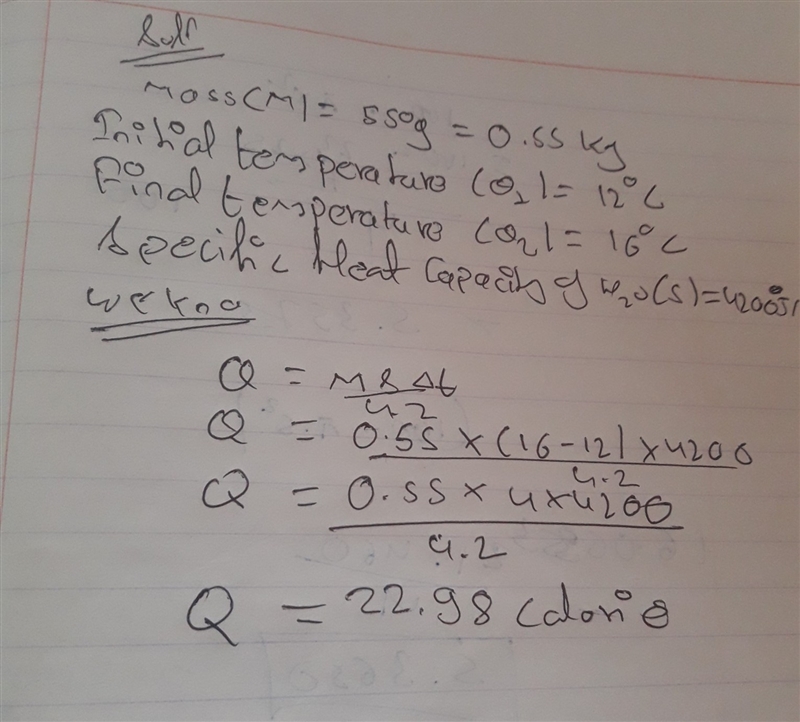 Soln
Mass(M) = 550g = 0.55 kg
Initial temperature (θ1) = 12°C
Final temperature (θ2) = 16°C
Specific Heat Capacity of H2O(S) = 4200J/
we know
Q = MSΔt
4.2
Q = 0.55 × (16-12) × 4200
4.2
Q = 0.55 × 4 × 4200
4.2
Q = 22.98 Calorie